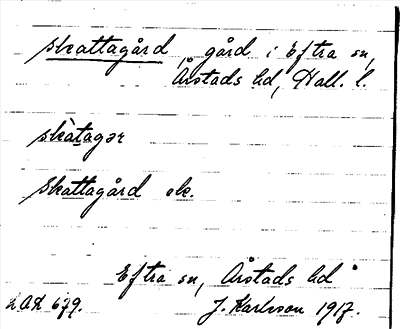 Skattagård, gård i Eftra sn,
Årstads hd, Hall. l.
skàtagər
Skattagård ek.
Eftra sn, Årstads hd
LAL 679.
J. Karlsson 1917.